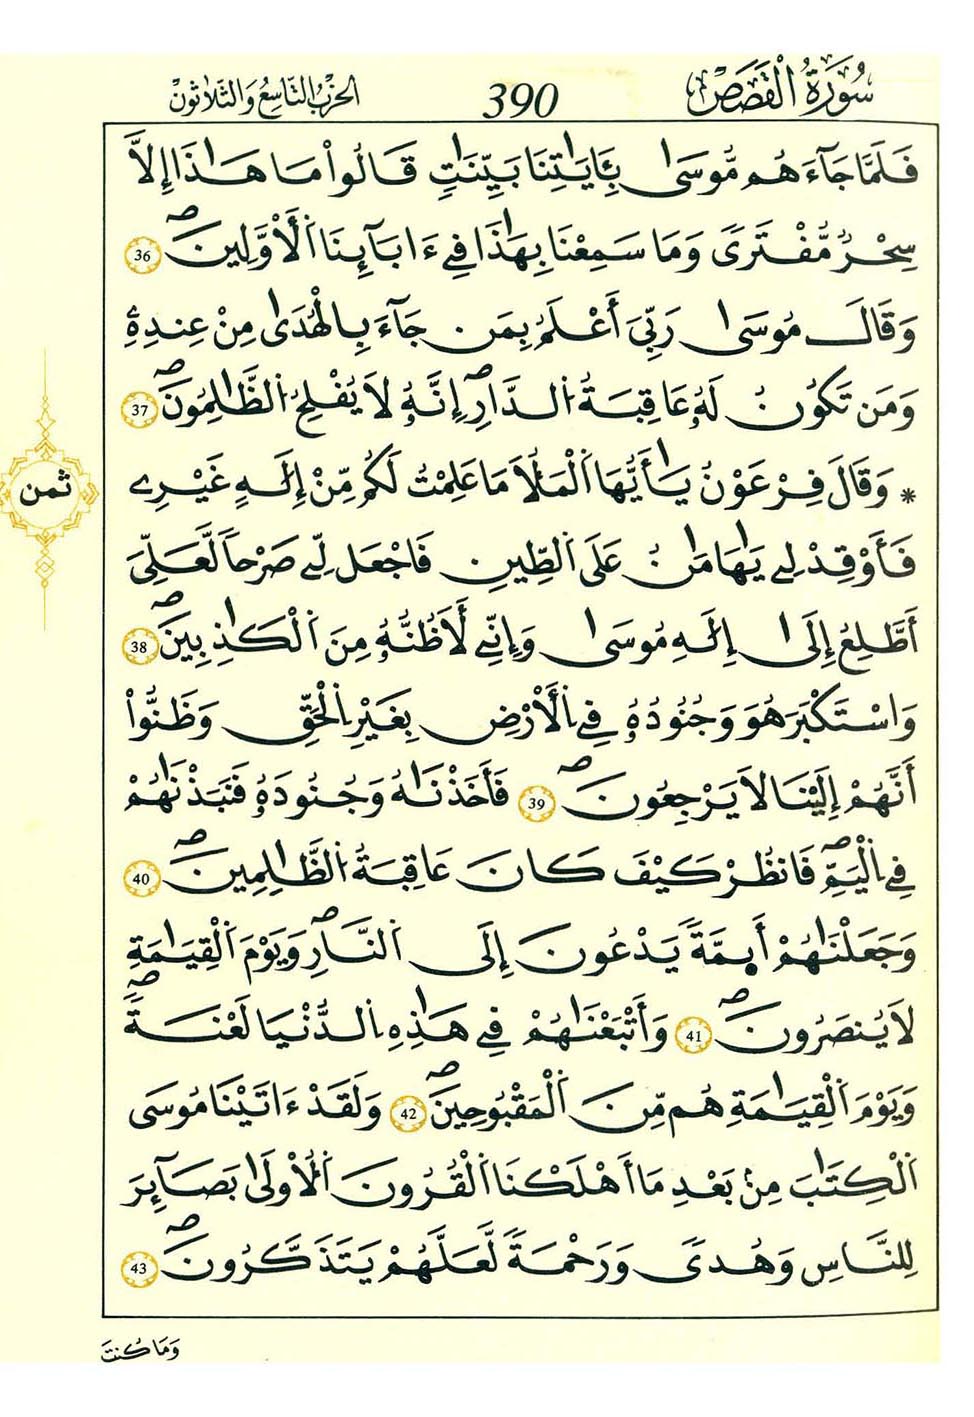 سُورَةُ الْقَصَصِ
390
الحِزْبُ التَّاسِعُ وَالثَّلَاثُونَ
فَلَمَّا جَآءَهُم مُّوسَىٰ بِـَٔايَٰتِنَا بَيِّنَٰتٖ قَالُواْ مَا هَٰذَا إِلَّا
سِحْرٞ مُّفْتَرىٗ وَمَا سَمِعْنَا بِهَٰذَا فِے ءَابَآئِنَا اَ۬لْأَوَّلِينَۖ 36
وَقَالَ مُوسَىٰ رَبِّيَ أَعْلَمُ بِمَن جَآءَ بِالْهُدَىٰ مِنْ عِندِهِۦ
وَمَن تَكُونُ لَهُۥ عَٰقِبَةُ اُ۬لدَّارِۖ إِنَّهُۥ لَا يُفْلِحُ اُ۬لظَّٰلِمُونَۖ 37
* وَقَالَ فِرْعَوْنُ يَٰأَيُّهَا اَ۬لْمَلَأُ مَا عَلِمْتُ لَكُم مِّنْ إِلَٰهٍ غَيْرِے
فَأَوْقِدْ لِے يَٰهَٰمَٰنُ عَلَى اَ۬لطِّينِ فَاجْعَل لِّے صَرْحاٗ لَّعَلِّيَ
أَطَّلِعُ إِلَىٰ إِلَٰهِ مُوسَىٰ وَإِنِّے لَأَظُنُّهُۥ مِنَ اَ۬لْكَٰذِبِينَۖ 38
وَاسْتَكْبَرَ هُوَ وَجُنُودُهُۥ فِے اِ۬لْأَرْضِ بِغَيْرِ اِ۬لْحَقِّ وَظَنُّواْ
أَنَّهُمْ إِلَيْنَا لَا يَرْجِعُونَۖ 39 فَأَخَذْنَٰهُ وَجُنُودَهُۥ فَنَبَذْنَٰهُمْ
فِے اِ۬لْيَمِّۖ فَانظُرْ كَيْفَ كَانَ عَٰقِبَةُ اُ۬لظَّٰلِمِينَۖ 40
وَجَعَلْنَٰهُمْ أَئِمَّةٗ يَدْعُونَ إِلَى اَ۬لنَّارِۖ وَيَوْمَ اَ۬لْقِيَٰمَةِ
لَا يُنصَرُونَۖ 41 وَأَتْبَعْنَٰهُمْ فِے هَٰذِهِ اِ۬لدُّنْيَا لَعْنَةٗۖ
وَيَوْمَ اَ۬لْقِيَٰمَةِ هُم مِّنَ اَ۬لْمَقْبُوحِينَۖ 42 وَلَقَدْ ءَاتَيْنَا مُوسَى
اَ۬لْكِتَٰبَ مِنۢ بَعْدِ مَا أَهْلَكْنَا اَ۬لْقُرُونَ اَ۬لُاولَىٰ بَصَآئِرَ
لِلنَّاسِ وَهُدىٗ وَرَحْمَةٗ لَّعَلَّهُمْ يَتَذَكَّرُونَۖ 43
ثمن
وَمَا كُنتَ